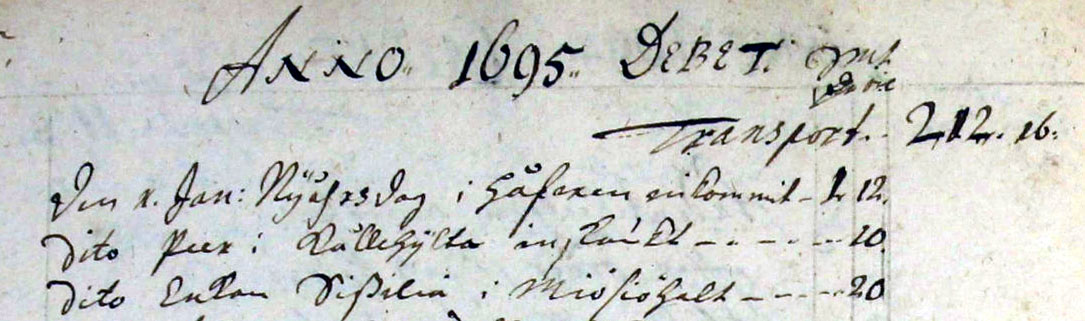 ANNO 1695 DEBET. Smt
Transport. 212. 16.
Den 1. Jan: Nyåhrsdag i Håfwen inkommit - 1. 12.
Dito Peer i Källehylta inskänkt - - - - - 10
Dito Enkan Sissilia i Miösiöhalt - - - - - 20